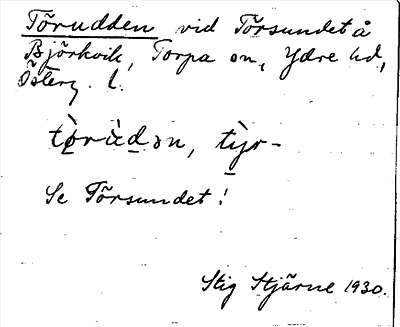 Törudden vid Törsundet å
Björkvik, Torpa sn, Ydre hd,
Österg. l.
tö̀rùdən, tỳr-
Se Törsundet!
Stig Stjärne 1930.